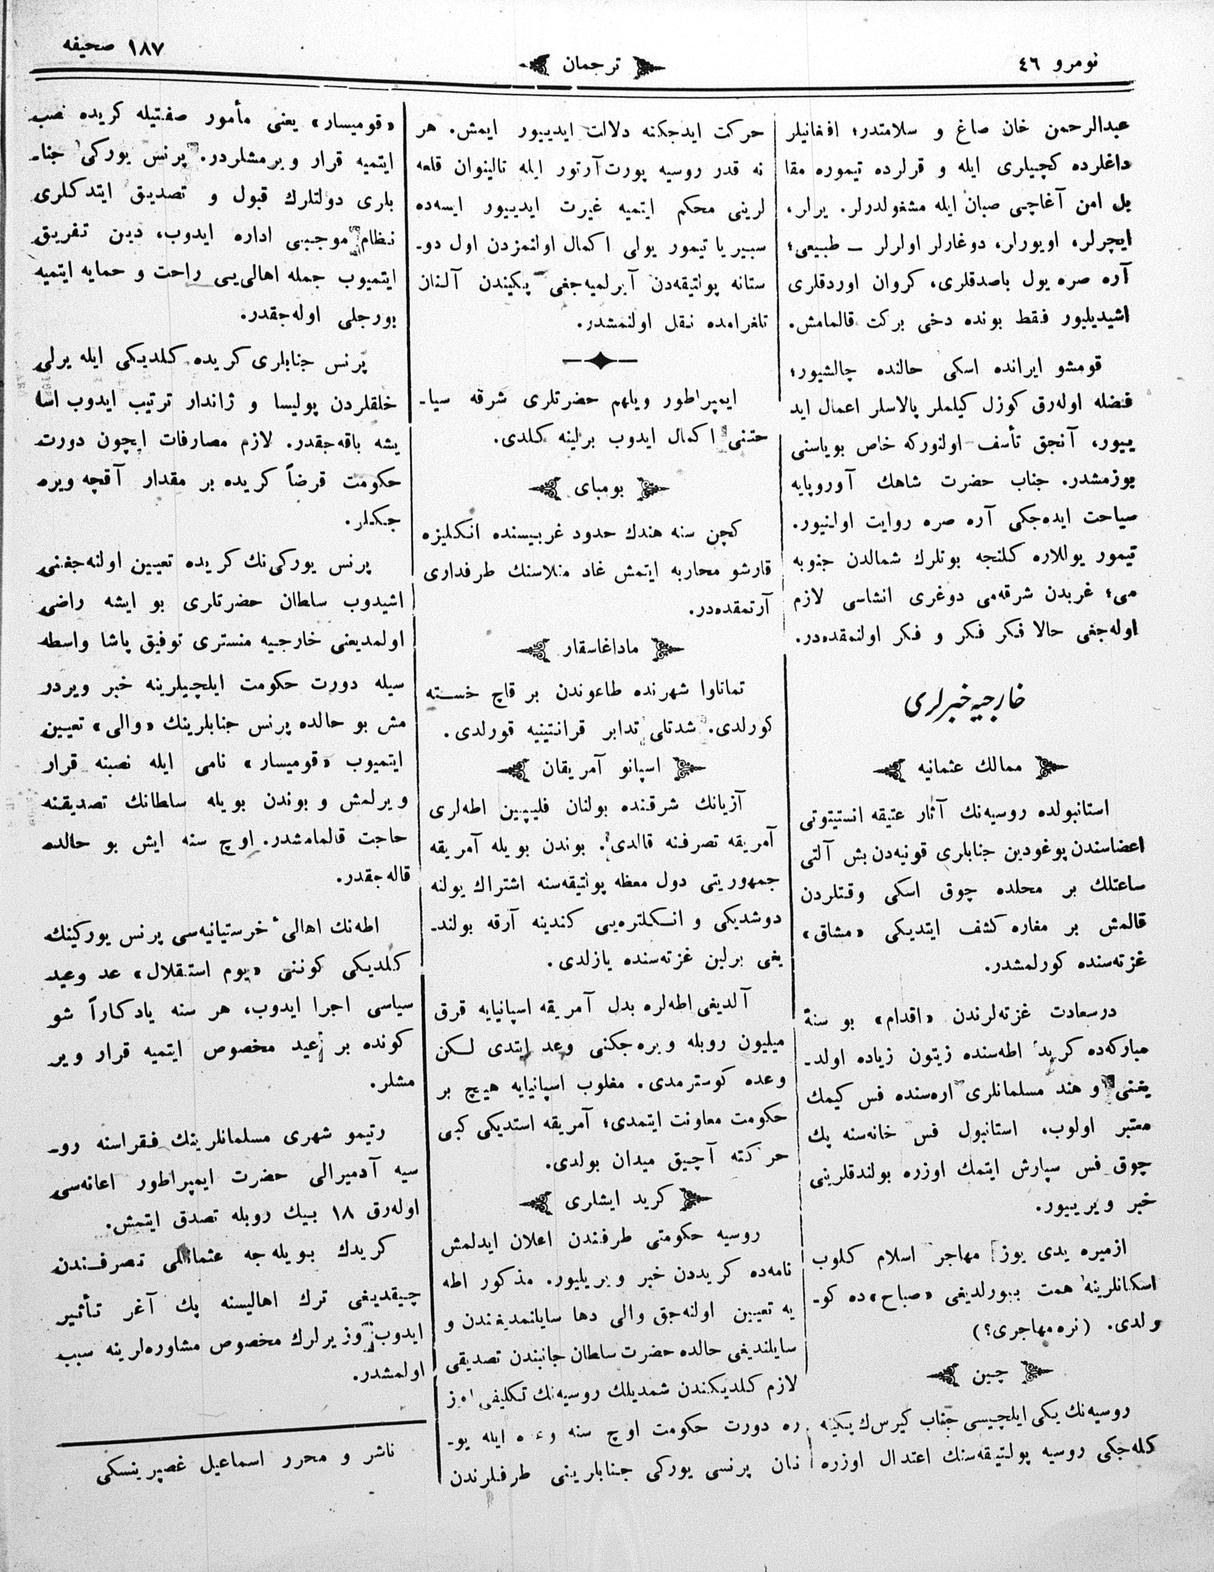 نومرو ٤٦
ترجمان
١٨٧ صحیفه
عبدالرحمن خان صاغ و سلامتدر؛ افغانیلر
داغلرده کچییلری ایله و قرلرده تیموره مقا
بل امن آغاچی صبان ایله مشغولدرلر. یرلر،
ایچرلر، اویورلر، دوغارلر اولرلر — طبیعی؛
آره صره یول باصدقلری، کروان اوردقلری
اشیدیلیور فقط بونده دخی برکت قالمامش.
قومشو ایرانده اسکی حالنده چالشیور؛
فضله اوله‌رق کوزل کیلملر پالاسلر اعمال اید
ییور، آنجق تأسف اولنورکه خاص بویاسنی
یوزمشدر. جناب حضرت شاهك آوروپایه
سیاحت ایده‌جکی آره صره روایت اولنیور.
تیمور یوللاره کلنجه بوتلرك شمالدن جنوبه
می؛ غربدن شرقه‌می دوغری انشاسی لازم
اوله‌جغی حالا فکر فکر و فکر اولنمقده‌در.
خارجیه خبرلری
ممالك عثمانیه
استانبولده روسیه‌نك آثار عتیقه انستیتوتی
اعضاسندن پوغودین جنابلری قونیه‌دن بش آلتی
ساعتلك بر محلده چوق اسکی وقتلردن
قالمش بر مغاره کشف ایتدیکی «مشاق»
غزته‌سنده کورلمشدر.
درسعادت غزته‌لرندن «اقدام» بو سنهٔ
مبارکه‌ده کرید اطه‌سنده زیتون زیاده اولد-
یغنی و هند مسلمانلری اره‌سنده فس کیمك
معتبر اولوب، استانبول فس خانه‌سنه پك
چوق فس سپارش ایتمك اوزره بولندقلرینی
خبر ویرییور.
ازمیره یدی یوز مهاجر اسلام کلوب
اسکانلرینه همت بیورلدیغی «صباح»ده کو-
ولدی. (نره مهاجری؟)
چین
روسیه‌نك یکی ایلچیسی جناب کیرس‌ك پکینه
کله‌جکی روسیه پولتیقه‌سنك اعتدال اوزره
حرکت ایدجکنه دلالت ایدییور ایمش. هر
نه قدر روسیه پورت‌آرتور ایله تالینوان قلعه
لرینی محکم ایتمیه غیرت ایدییور ایسه‌ده
سبیریا تیمور یولی اکمال اولنمزدن اول دو-
ستانه پولتیقه‌دن آیرلمیه‌جغی پکیندن آلنان
تلغرامده نقل اولنمشدر.
ایمپراطور ویلهم حضرتلری شرقه سیا-
حتنی اکمال ایدوب برلینه کلدی.
بومبای
کچن سنه هندك حدود غربیسنده انکلیزه
قارشو محاربه ایتمش غاد منلاسنك طرفداری
آرتمقده‌در.
ماداغاسقار
تماتاوا شهرنده طاعوندن بر قاچ خسته
کورلدی. شدتلی تدابر قرانتینیه قورلدی.
اسپانو آمریقان
آزیانك شرقنده بولنان فلیپین اطه‌لری
آمریقه تصرفنه قالدی. بوندن بویله آمریقه
جمهوریتی دول معظه پولتیقه‌سنه اشتراك یولنه
دوشدیکی و انکلتره‌یی کندینه آرقه بولند-
یغی برلین غزته‌سنده یازلدی.
آلدیغی اطه‌لره بدل آمریقه اسپانیایه قرق
میلیون روبله ویره‌جکنی وعد ایتدی لکن
وعده کوسترمدی. مغلوب اسپانیایه هیچ بر
حکومت معاونت ایتمدی؛ آمریقه استدیکی کبی
حرکته آچیق میدان بولدی.
کرید ایشاری
روسیه حکومتی طرفندن اعلان ایدلمش
نامه‌ده کریددن خبر ویریلیور. مذکور اطه
یه تعیین اولنه‌جق والی دها سایلنمدیغندن و
سایلندیغی حالده حضرت سلطان جانبندن تصدیقی
لازم کلدیکندن شمدیلك روسیه‌نك تکلیفی اوز
ره دورت حکومت اوچ سنه وعده ایله یو-
نان پرنسی یورکی جنابلرینی طرفلرندن
«قومیسار» یعنی مأمور صفتیله کریده نصب
ایتمیه قرار ویرمشلردر. پرنس یورکی جنا-
بلری دولتلرك قبول و تصدیق ایتدکلری
نظام موجیبی اداره ایدوب، دین تفریق
ایتمیوب جمله اهالی‌یی راحت و حمایه ایتمیه
بورجلی اوله‌جقدر.
پرنس جنابلری کریده کلدیکی ایله یرلی
خلقلردن پولیسا و ژاندار ترتیب ایدوب اسا
یشه باقه‌جقدر. لازم مصارفات ایچون دورت
حکومت قرضاً کریده بر مقدار آقچه ویره
جکلر.
پرنس یورکی‌نك کریده تعیین اولنه‌جغنی
اشیدوب سلطان حضرتلری بو ایشه راضی
اولمدیغنی خارجیه منستری توفیق پاشا واسطه
سیله دورت حکومت ایلچیلرینه خبر ویردر
مش بو حالده پرنس جنابلرینك «والی» تعیین
ایتمیوب «قومیسار» نامی ایله نصبنه قرار
ویرلمش و بوندن بویله سلطانك تصدیقنه
حاجت قالمامشدر. اوچ سنه ایش بو حالده
قاله‌جقدر.
اطه‌نك اهالی خرستیانیه‌سی پرنس یورکینك
کلدیکی کوننی «یوم استقلال» عد وعید
سیاسی اجرا ایدوب، هر سنه یادکاراً شو
کونده بر عید مخصوص ایتمیه قرار ویر
مشلر.
رتیمو شهری مسلمانلرینك فقراسنه رو-
سیه آدمیرالی حضرت ایمپراطور اعانه‌سی
اوله‌رق ١٨ بیك روبله تصدق ایتمش.
کریدك بویله‌جه عثمانلی تصرفندن
چیقدیغی ترك اهالیسنه پك آغر تأثیر
ایدوب وزیرلرك مخصوص مشاوره‌لرینه سبب
اولمشدر.
ناشر و محرر اسماعیل غصپرینسکی